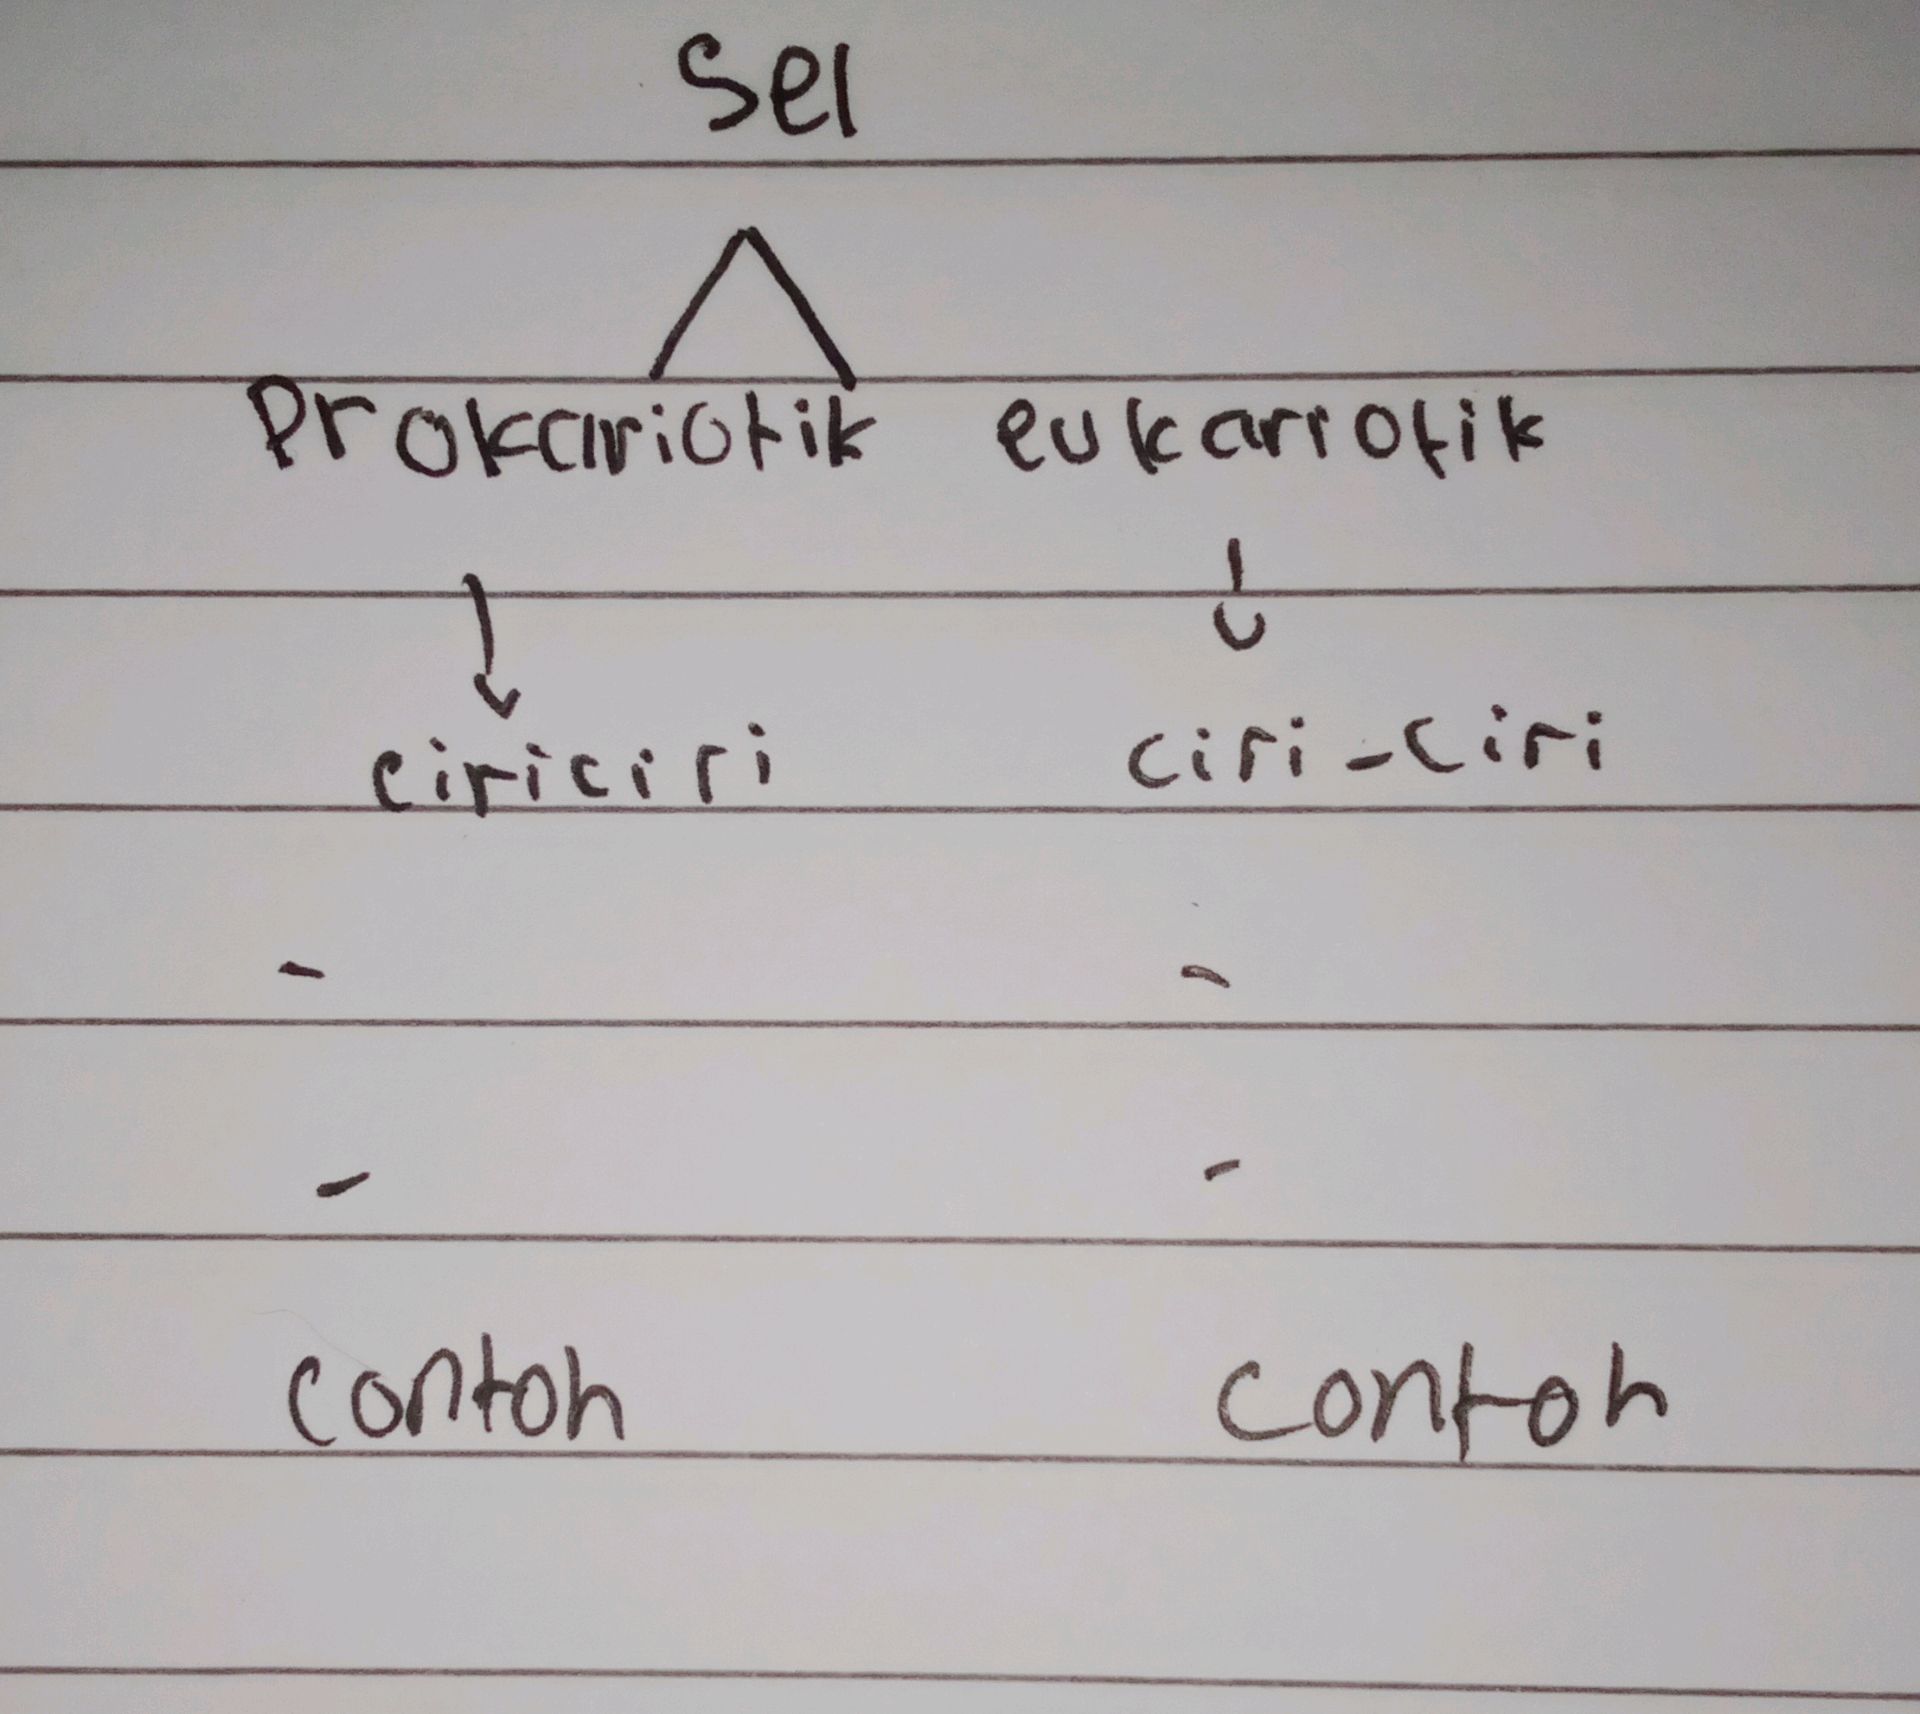 Sel
Prokariotik eukariotik
ciriciri ciri-ciri
- -
- -
contoh contoh